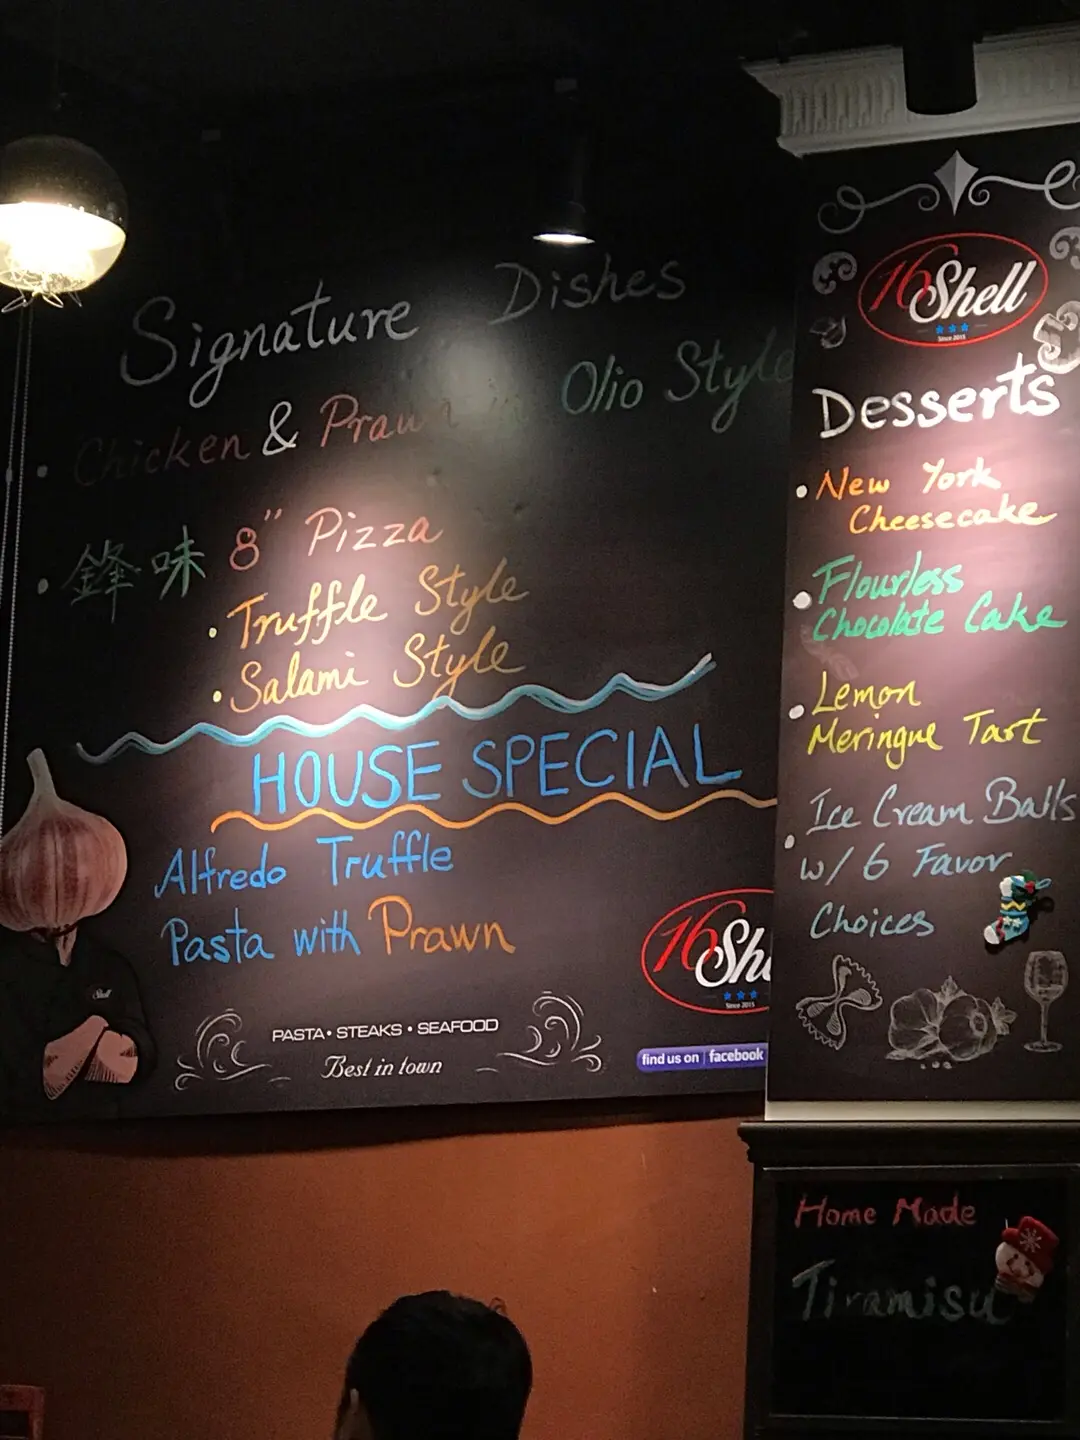 Signature Dishes
• Chicken & Prawn in Olio Style
• 鋒味 8" Pizza
• Truffle Style
• Salami Style
HOUSE SPECIAL
Alfredo Truffle
Pasta with Prawn
16 Sh
Since 2015
PASTA • STEAKS • SEAFOOD
Best in town
find us on facebook
Shell
16 Shell
Since 2015
Desserts
• New York
Cheesecake
• Flourless
Chocolate Cake
• Lemon
Meringue Tart
• Ice Cream Balls
w/ 6 Favor
Choices
Home Made
Tiramisu